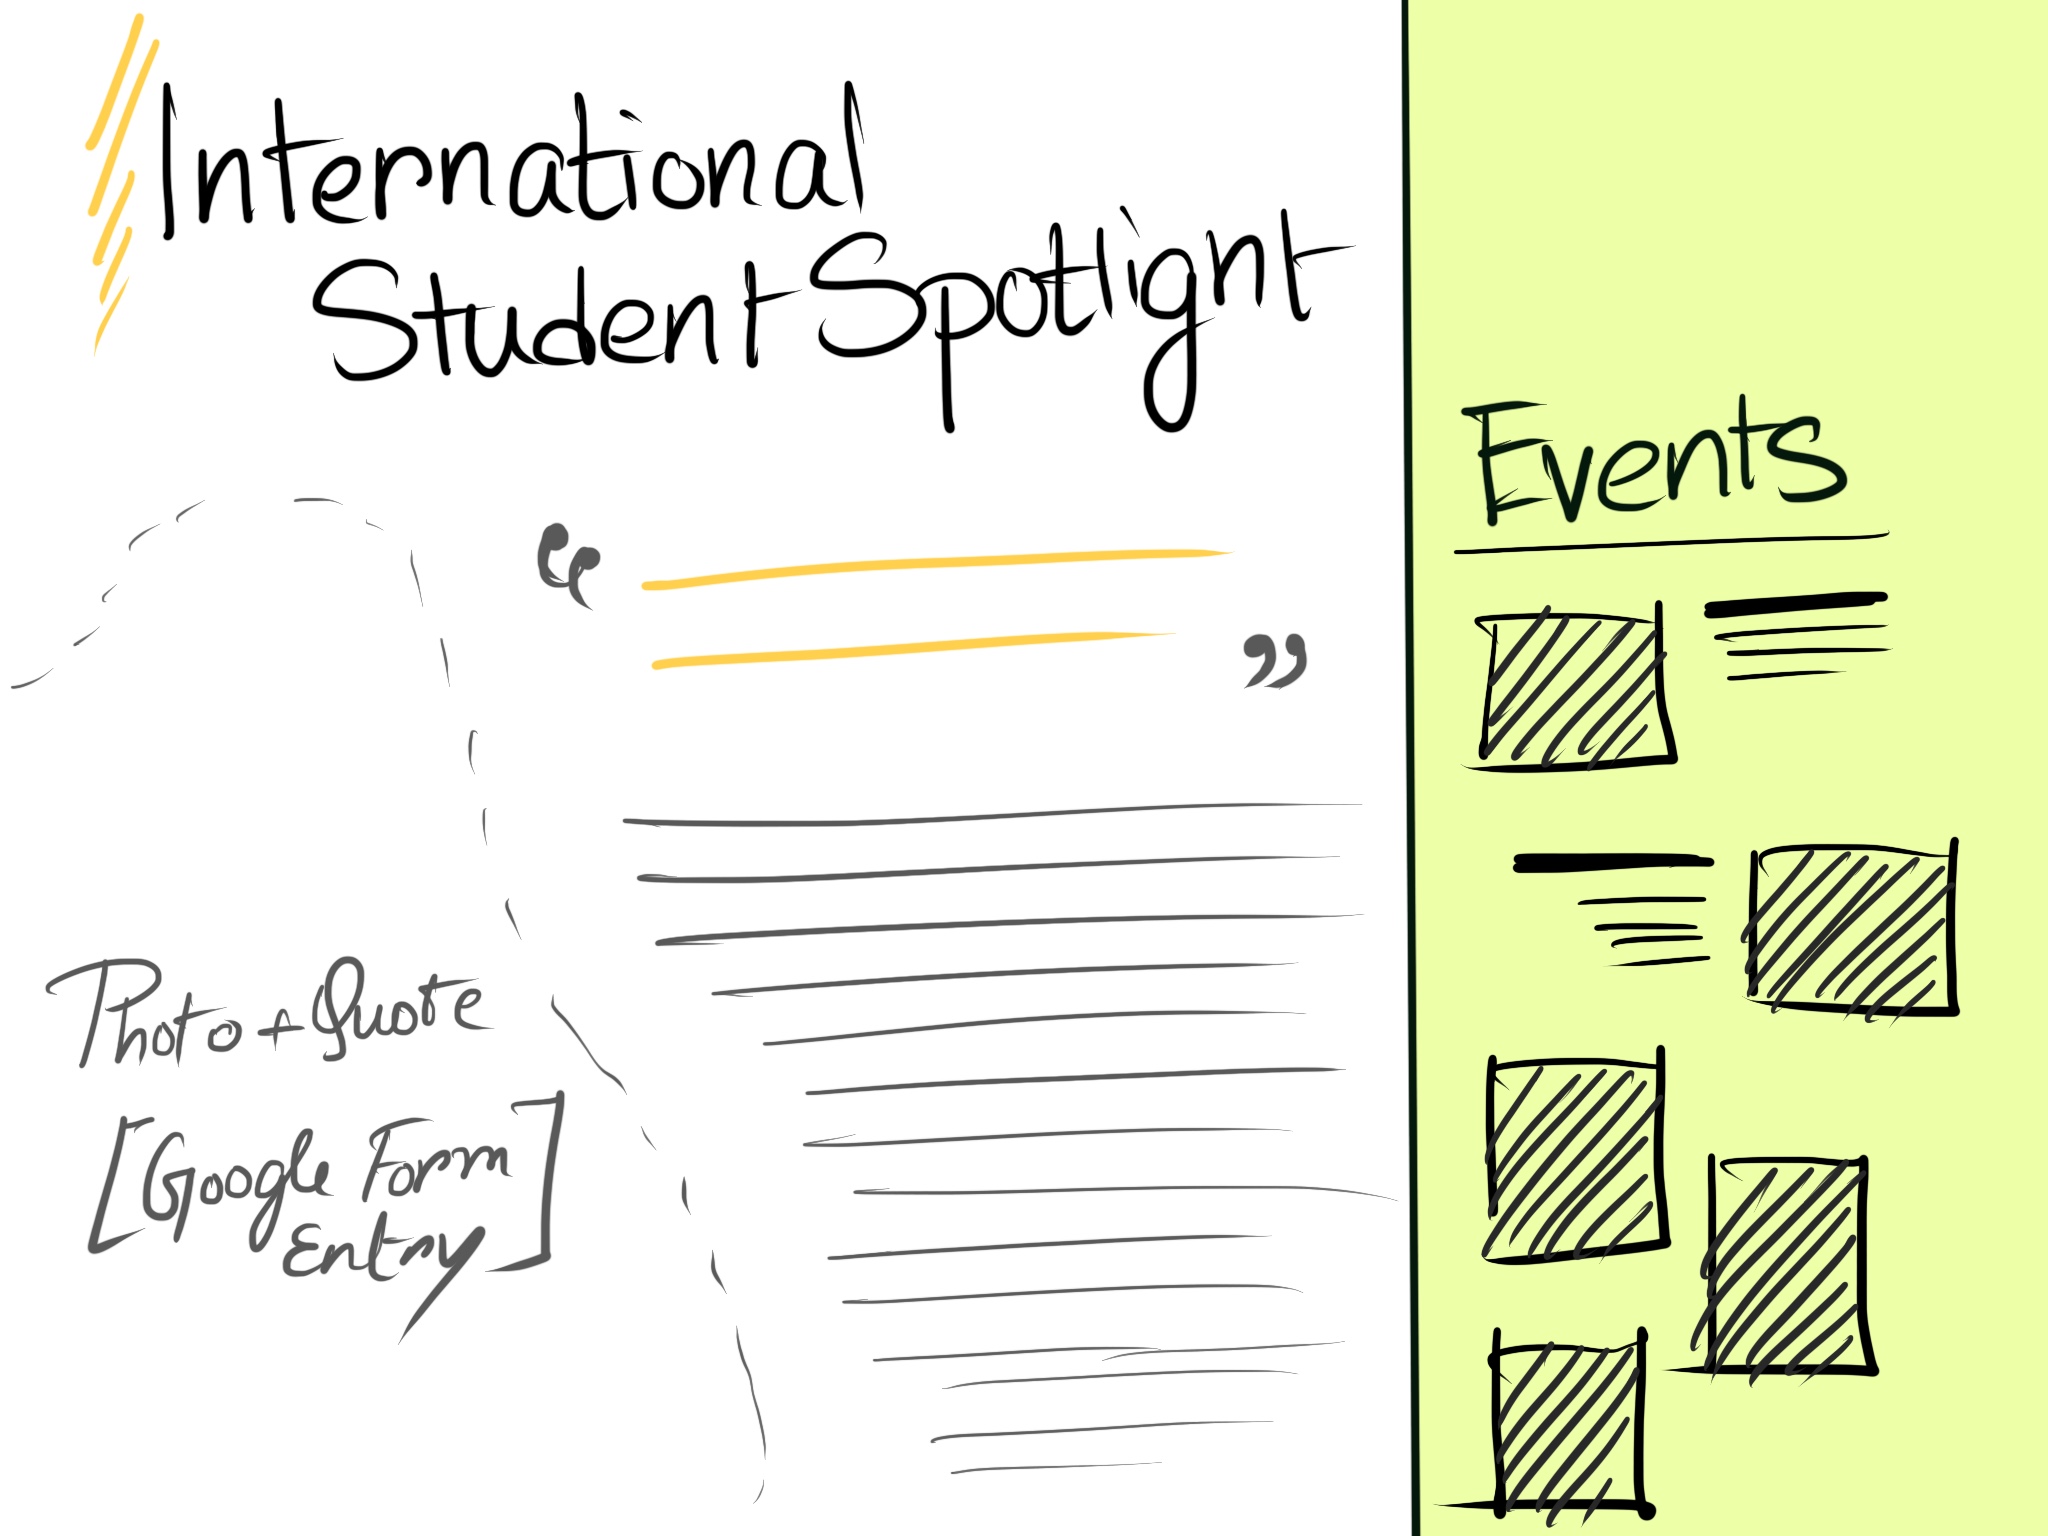 International
Student Spotlight
“
”
Photo + Quote
[Google Form
Entry]
Events